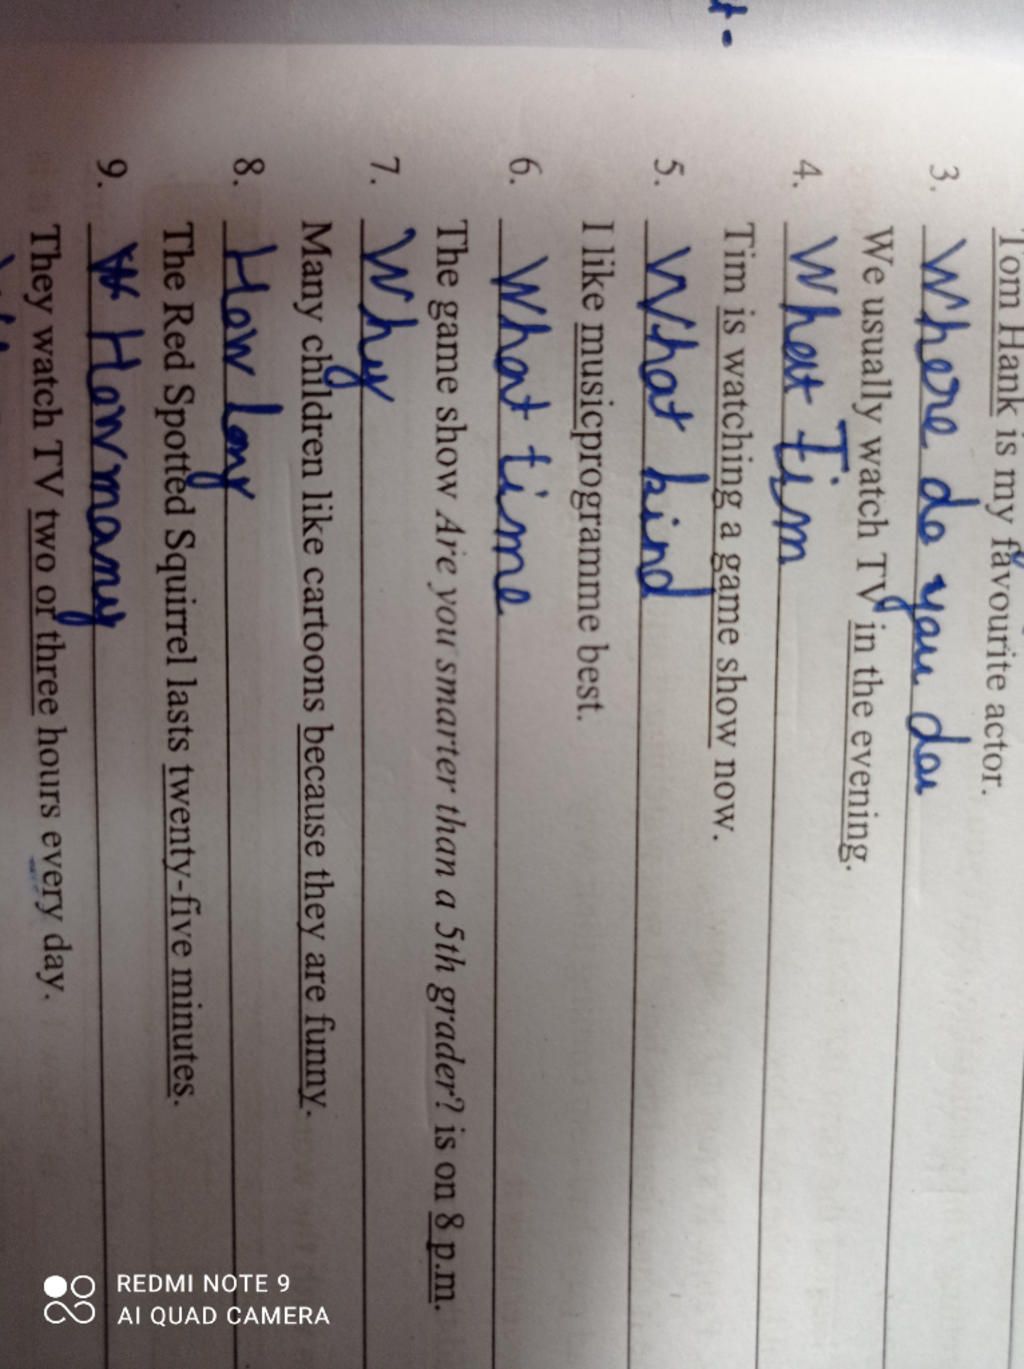 Tom Hank is my favourite actor.
3. Where do you
We usually watch TV in the evening.
4. What Tim
Tim is watching a game show now.
5. What kind
I like musicprogramme best.
6. What time
The game show Are you smarter than a 5th grader? is on 8 p.m.
7. Why
Many children like cartoons because they are funny.
8. How long
The Red Spotted Squirrel lasts twenty-five minutes.
9. How many
They watch TV two or three hours every day.
REDMI NOTE 9
AI QUAD CAMERA